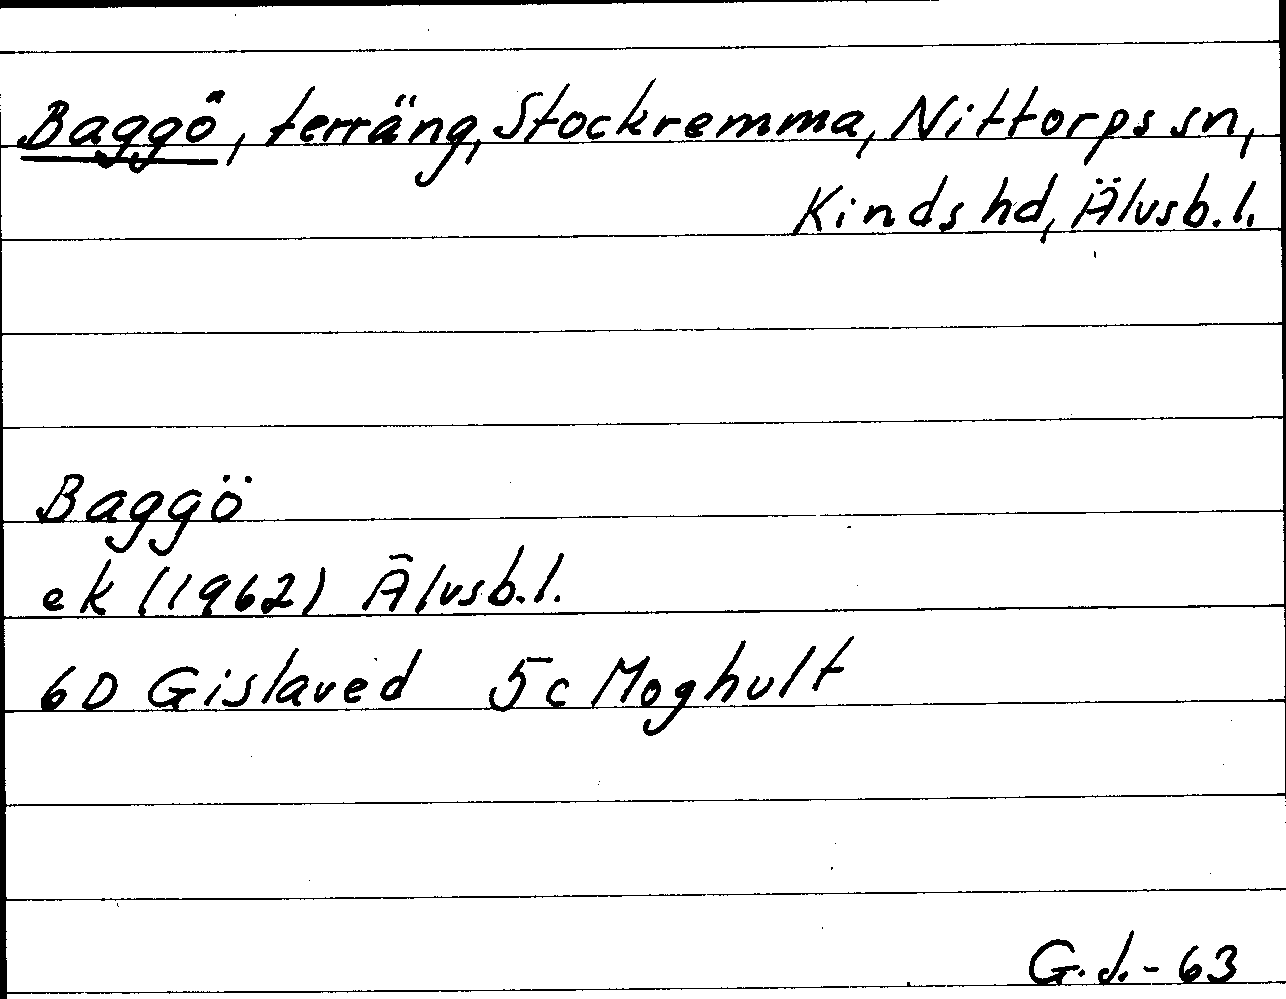 Baggö, terräng, Stockremma, Nittorps sn,
Kinds hd, Älvsb.l.
Baggö
ek (1962) Älvsb.l.
6D Gislaved 5c Moghult
G.J.-63